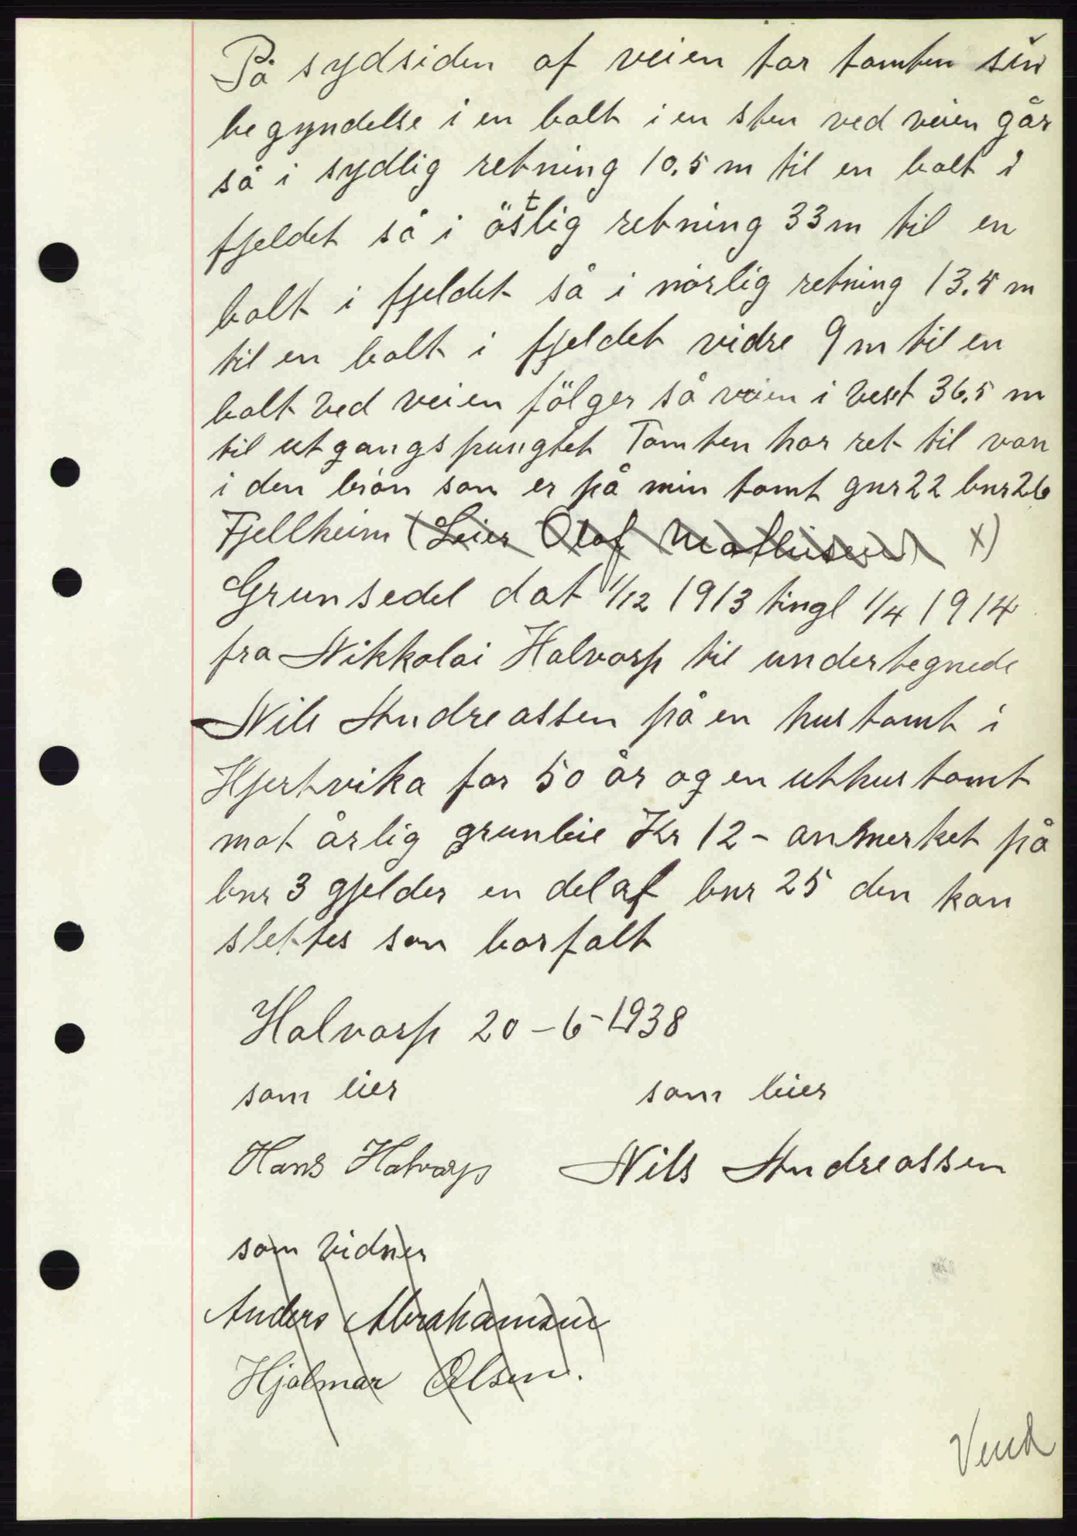 På sydsiden af veien tar tomten sin
begyndelse i en bolt i en sten ved veien går
så i sydlig retning 10.5 m til en bolt i
fjeldet så i östlig retning 33 m til en
bolt i fjeldet så i nörlig retning 13.5 m
til en bolt i fjeldet vidre 9 m til en
bolt ved veien fölger så veien i vest 36.5 m
til utgangspungtet Tomten har ret til van
i den brön son er på min tomt gnr 22 bnr 26
Fjellheim (Leier Olaf Mathisen) x)
Grunsedel dat 1/12 1913 tingl 1/4 1914
fra Nikkolai Halvorsp til undertegnede
Nils Andreassen på en hustomt i
Hjertvika for 50 år og en uthustomt
mot årlig grunleie Kr 12 - anmerket på
bnr 3 gjelder en del af bnr 25 den kan
slettes son borfalt
Halvorsp 20-6-1938
som eier som leier
Hans Halvorsp Nils Andreassen
som vidner
Anders Abrahamsen
Hjalmar Olsen.
Vend